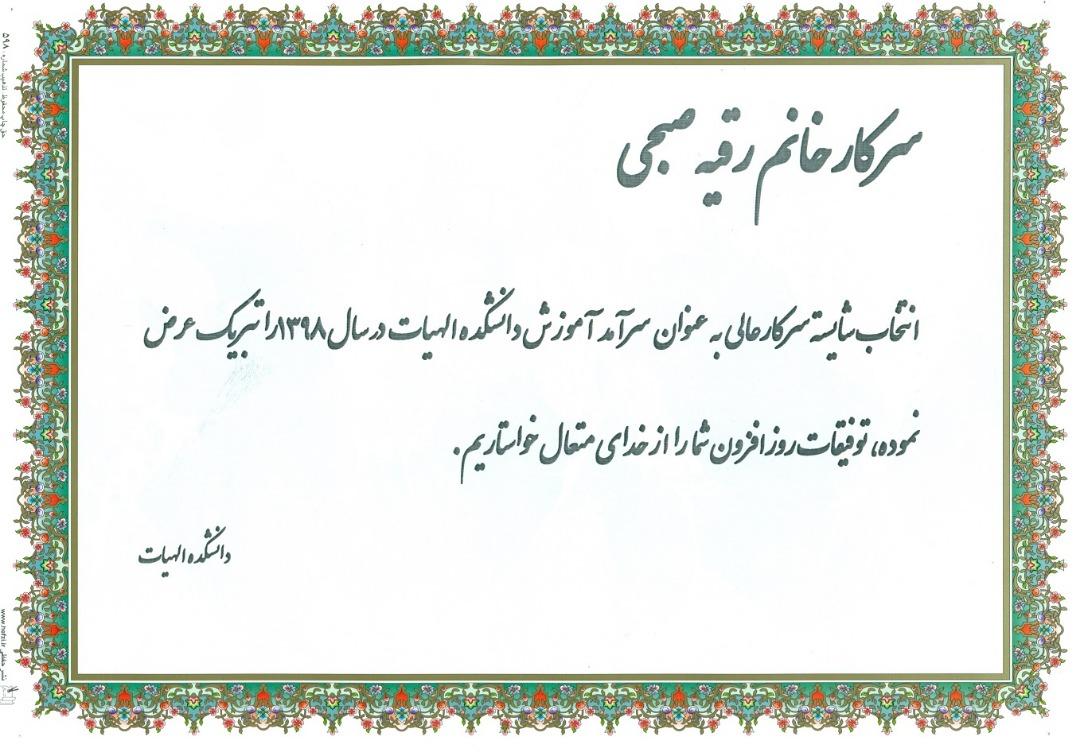 سرکار خانم رقیه صبحی
انتخاب شایسته سرکارعالی به عنوان سرآمد آموزش دانشکده الهیات در سال ۱۳۹۸ را تبریک عرض
نموده، توفیقات روز افزون شما را از خدای متعال خواستاریم.
دانشکده الهیات
حق چاپ محفوظ. تذهیب شماره: ۵۹۸
www.hafzi.ir